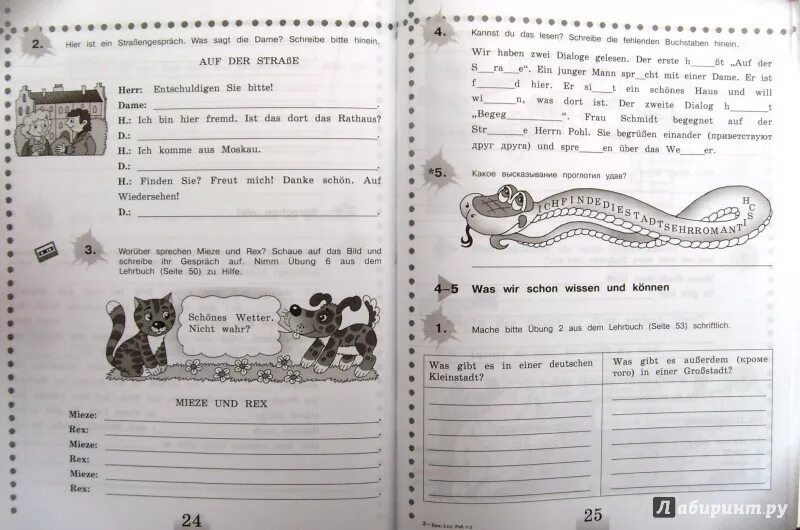 2. Hier ist ein Straßengespräch. Was sagt die Dame? Schreibe bitte hinein.
AUF DER STRAßE
Herr: Entschuldigen Sie bitte!
Dame:
H.: Ich bin hier fremd. Ist das dort das Rathaus?
D.:
H.: Ich komme aus Moskau.
D.:
H.: Finden Sie? Freut mich! Danke schön. Auf
Wiedersehen!
D.:
3. Worüber sprechen Mieze und Rex? Schaue auf das Bild und
schreibe ihr Gespräch auf. Nimm Übung 6 aus dem
Lehrbuch (Seite 50) zu Hilfe.
Schönes Wetter.
Nicht wahr?
MIEZE UND REX
Mieze:
Rex:
Mieze:
Rex:
Mieze:
Rex:
24
4. Kannst du das lesen? Schreibe die fehlenden Buchstaben hinein.
Wir haben zwei Dialoge gelesen. Der erste h__ßt „Auf der
S__ra__e“. Ein junger Mann spr__cht mit einer Dame. Er ist
f____d hier. Er si__t ein schönes Haus und will
wi__n, was dort ist. Der zweite Dialog h____t
„Begeg________“. Frau Schmidt begegnet auf der
Str___e Herrn Pohl. Sie begrüßen einander (приветствуют
друг друга) und spre___en über das We___er.
*5. Какое высказывание проглотил удав?
ICHFINDEDIESTADTSEHRROMANTISCH
4–5 Was wir schon wissen und können
1. Mache bitte Übung 2 aus dem Lehrbuch (Seite 53) schriftlich.
Was gibt es in einer deutschen
Kleinstadt?
Was gibt es außerdem (кроме
того) in einer Großstadt?
25
Лабиринт.ру